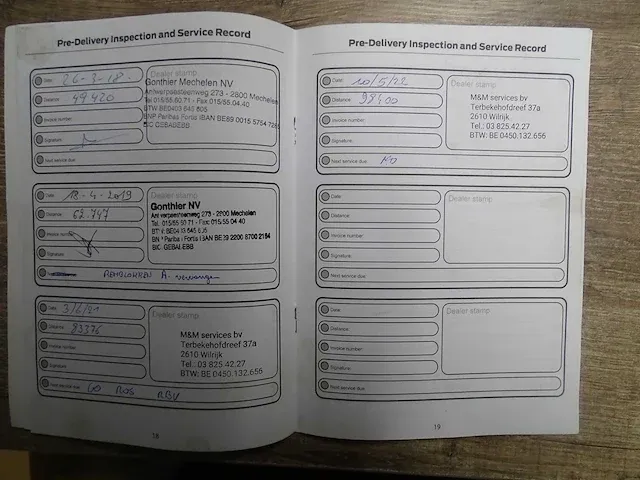 Pre-Delivery Inspection and Service Record
Date: 26-3-18.
Distance: 49420
Invoice number:
Signature:
Next service due:
Dealer stamp
Gonthier Mechelen NV
Antwerpsesteenweg 273 - 2800 Mechelen
Tel 015/55 60 71 - Fax 015/55.04.40
BTW BE0403 645 605
BNP Paribas Fortis IBAN BE89 0015 5754
BIC GEBABEBB
Date: 18-4-2019
Distance: 62.747
Invoice number:
Signature:
REMBLOKKEN A. vervangen
Dealer stamp
Gonthier NV
Antwerpsesteenweg 273 - 2800 Mechelen
Tel. 015/55 60 71 - Fax 015/55 04 40
BIC GEBABEBB
Date: 3/6/21
Distance: 83376
Invoice number:
Signature:
Next service due:
Dealer stamp
M&M services bv
Terbekehofdreef 37a
2610 Wilrijk
Tel.: 03 825.42.27
BTW: BE 0450.132.656
18
Pre-Delivery Inspection and Service Record
Date: 10/5/22
Distance: 98400
Invoice number:
Signature:
Next service due:
Dealer stamp
M&M services bv
Terbekehofdreef 37a
2610 Wilrijk
Tel.: 03 825.42.27
BTW: BE 0450.132.656
Date:
Distance:
Invoice number:
Signature:
Next service due:
Dealer stamp
Date:
Distance:
Invoice number:
Signature:
Next service due:
Dealer stamp
19